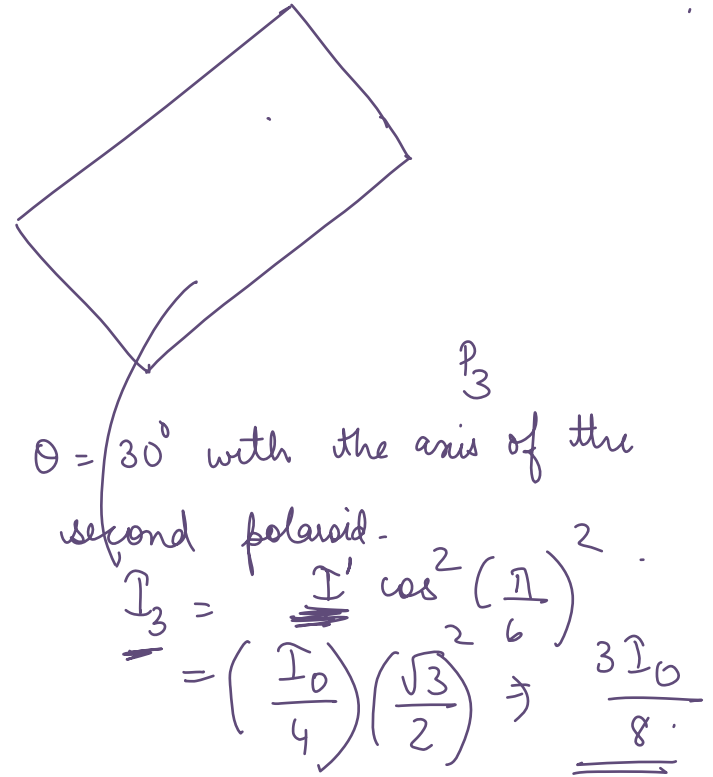 P₃
θ = 30° with the axis of the
second polaroid.
I₃ = I' cos² (π/6)²
= (I₀/4) (√3/2)² ⇒ 3I₀/8